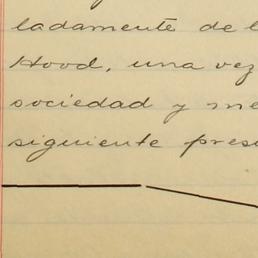 ladamente de l
Hood, una vez
sociedad y me
siguiente pres